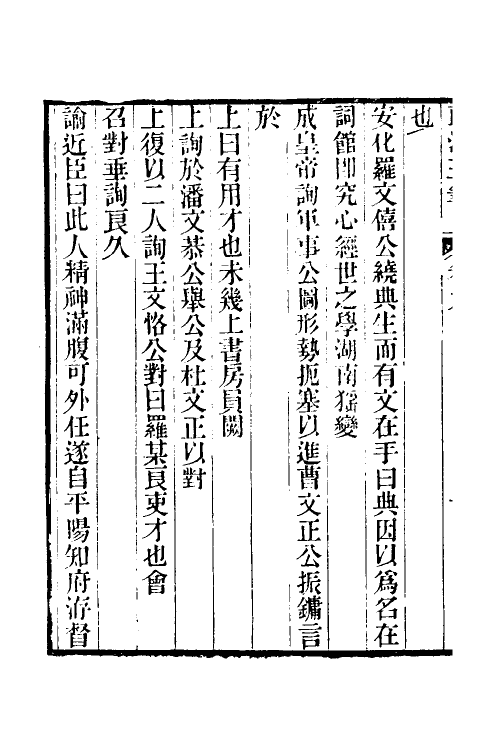 也
安化羅文僖公繞典生而有文在手曰典因以爲名在
詞館即究心經世之學湖南猺變
成皇帝詢軍事公圖形勢扼塞以進曹文正公振鏞言
於
上曰有用才也未幾上書房員闕
上詢於潘文恭公舉公及杜文正以對
上復以二人詢王文恪公對曰羅某良吏才也會
召對垂詢良久
諭近臣曰此人精神滿腹可外任遂自平陽知府洊督